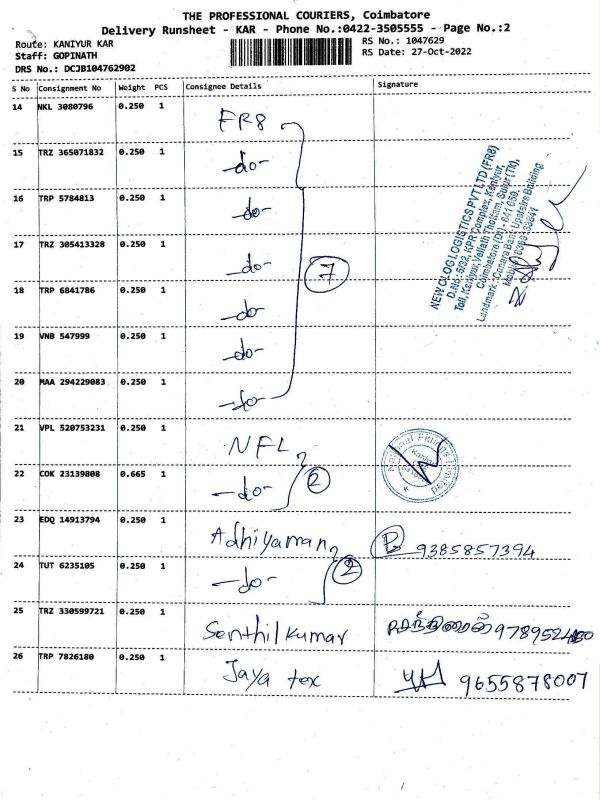 THE PROFESSIONAL COURIERS, Coimbatore
Delivery Runsheet - KAR - Phone No.:0422-3505555 - Page No.:2
Route: KANIYUR KAR
RS No.: 1047629
Staff: GOPINATH
RS Date: 27-Oct-2022
DRS No.: DCJB104762902
S No Consignment No Weight PCS Consignee Details Signature
14 NKL 3080796 0.250 1 FR8
15 TRZ 365071832 0.250 1 -do-
16 TRP 5784813 0.250 1 -do-
17 TRZ 305413328 0.250 1 -do-
7
18 TRP 6841786 0.250 1 -do-
19 VNB 547999 0.250 1 -do-
20 MAA 294229083 0.250 1 -do-
NEW GLOG LOGISTICS PVT LTD (FR8)
D.No: 5/32, KPR Complex, Kaniyur,
Toll, Kaniyur, Thottam, Sulur (TK),
Coimbatore (DT) - 641 659.
Landmark: Canara Bank Upstairs Building
21 VPL 520753231 0.250 1 NFL
National Fittings Limited
22 COK 23139808 0.665 1 -do- 2
23 EDQ 14913794 0.250 1 Adhiyaman 9385857394
24 TUT 6235105 0.250 1 -do- 2
25 TRZ 330599721 0.250 1 Senthilkumar
26 TRP 7826180 0.250 1 Jaya tex 9655878007